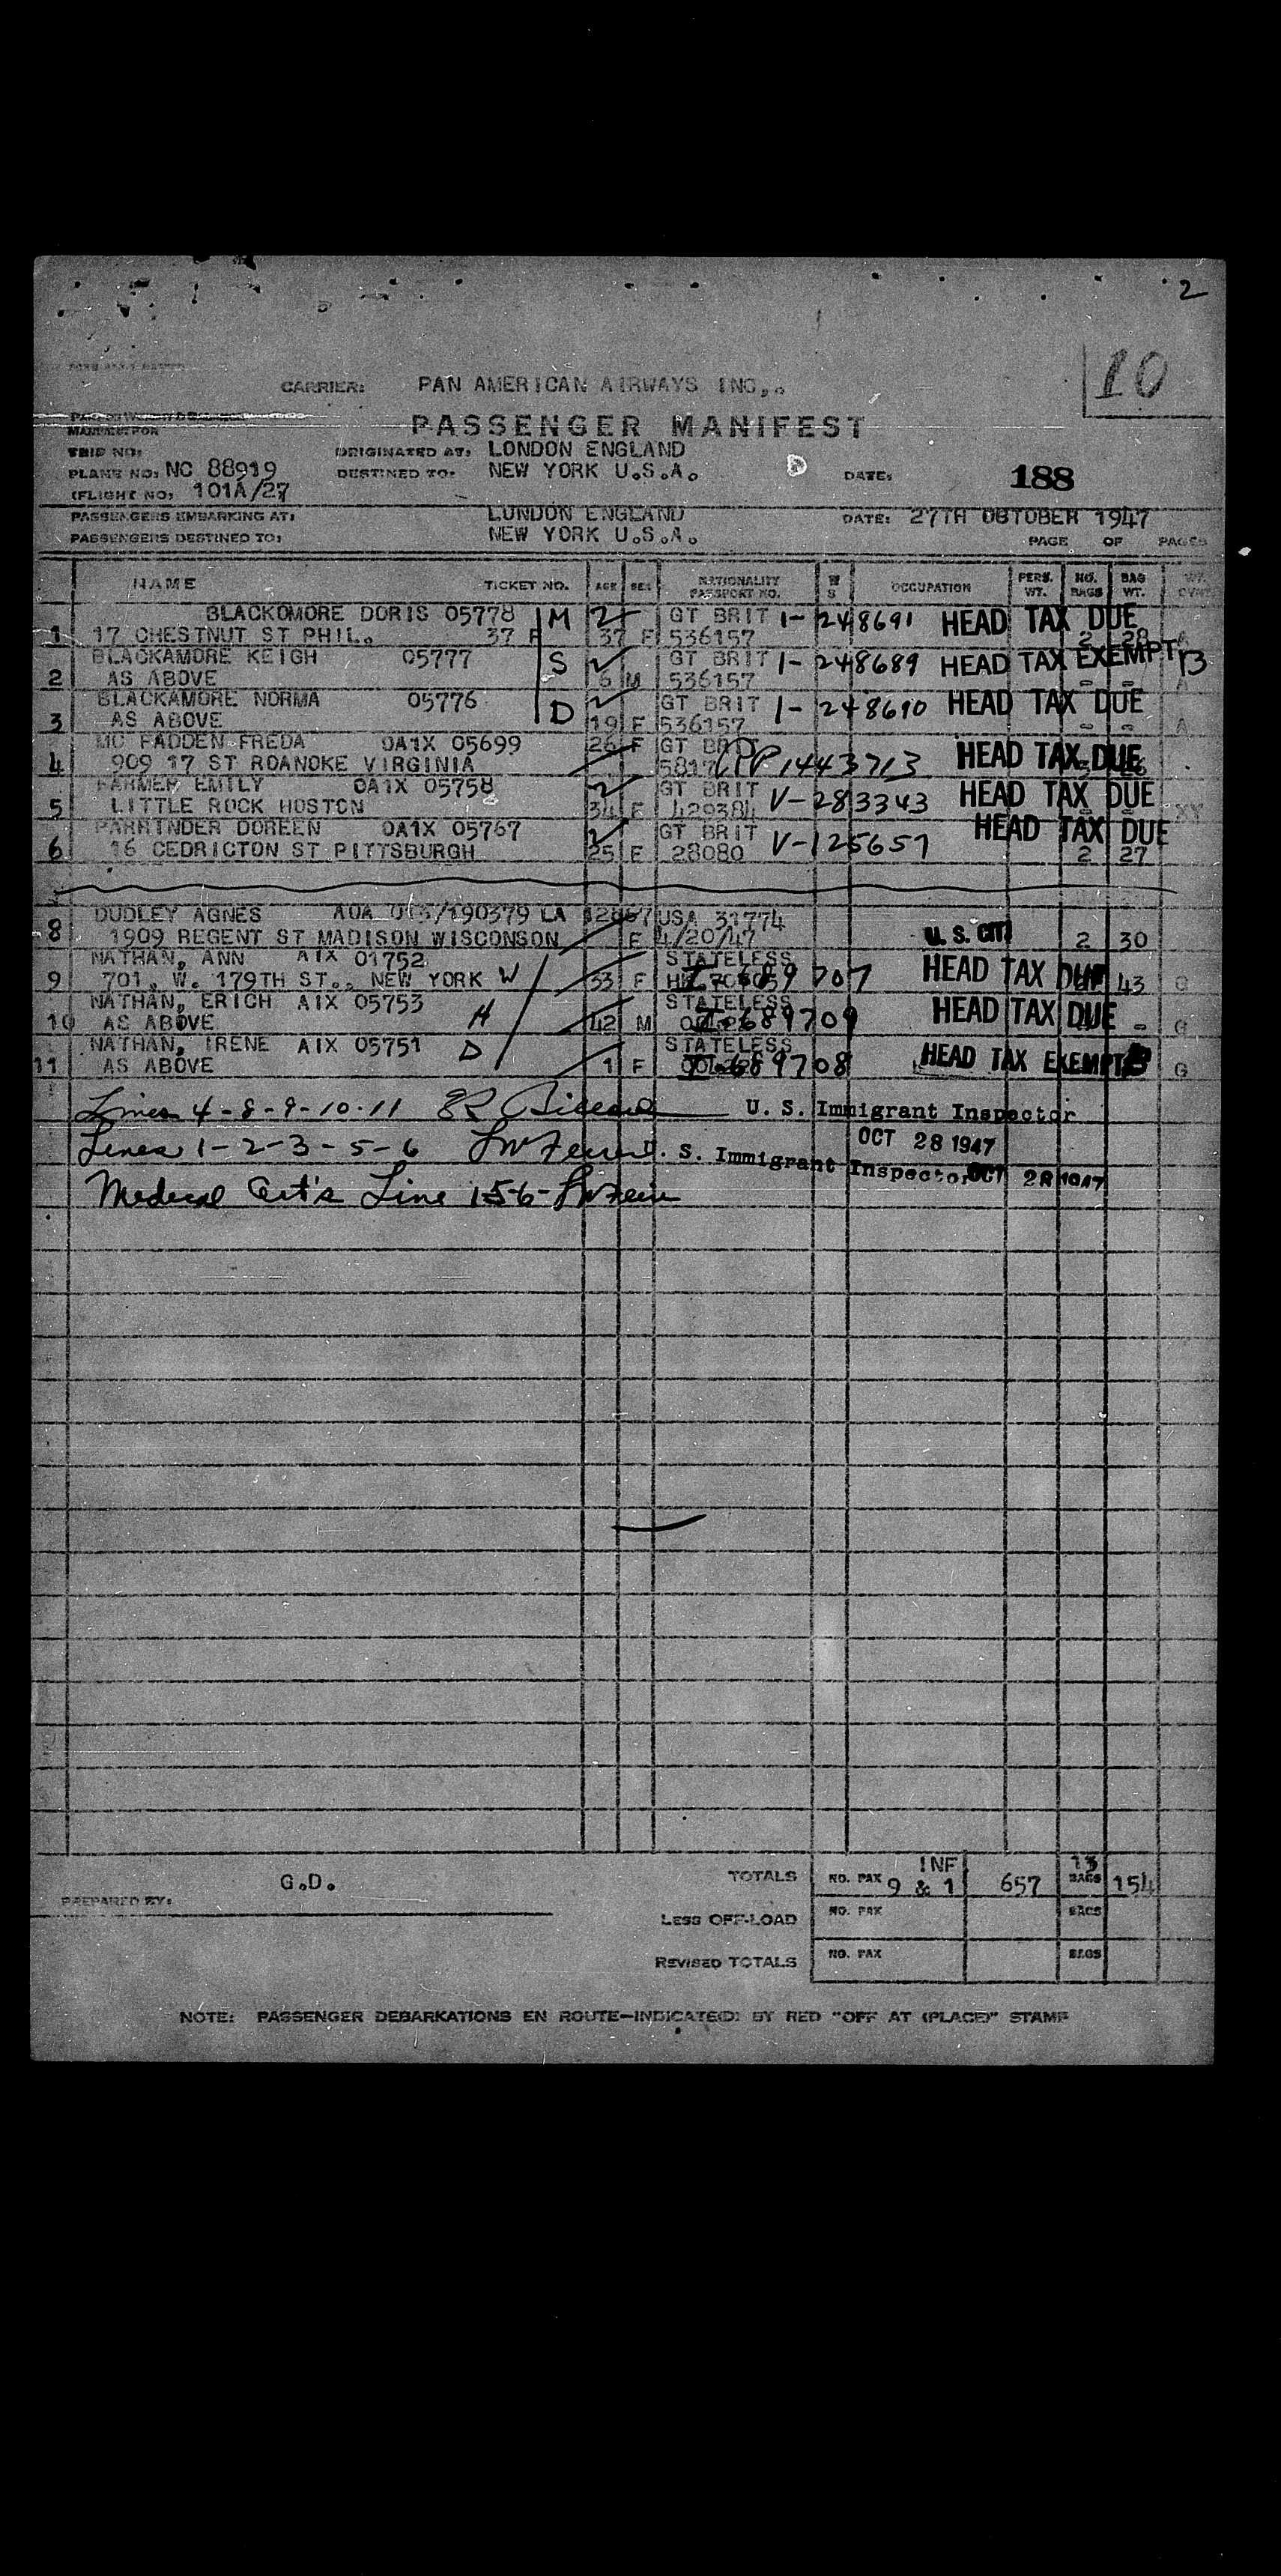 2
10
CARRIER: PAN AMERICAN AIRWAYS INC,.
PASSENGER MANIFEST
TRIP NO: ORIGINATED AT: LONDON ENGLAND
PLANE NO: NC 88919 DESTINED TO: NEW YORK U.S.A. DATE: 188
(FLIGHT NO: 101A/27
PASSENGERS EMBARKING AT: LONDON ENGLAND DATE: 27TH OBTOBER 1947
PASSENGERS DESTINED TO: NEW YORK U.S.A. PAGE OF PAGES
NAME TICKET NO. AGE SEX NATIONALITY PASSPORT NO. W S OCCUPATION PERS. WT. NO. BAGS BAG WT.
BLACKOMORE DORIS 05778 M GT BRIT 1-248691 HEAD TAX DUE
1 17 CHESTNUT ST PHIL. 37 F 37 F 536157 2 28 A
BLACKAMORE KEIGH 05777 S GT BRIT 1-248689 HEAD TAX EXEMPT 13
2 AS ABOVE 6 M 536157 - - A
BLACKAMORE NORMA 05776 D GT BRIT 1-248690 HEAD TAX DUE
3 AS ABOVE 19 F 536157 - - A
MC FADDEN FREDA OA1X 05699 26 F GT BRIT HEAD TAX DUE
4 909 17 ST ROANOKE VIRGINIA 1443713
FARMER EMILY OA1X 05758 GT BRIT V-283343 HEAD TAX DUE
5 LITTLE ROCK HOSTON 34 F 429384 XY
PARRINDER DOREEN OA1X 05767 GT BRIT V-125657 HEAD TAX DUE
6 16 CEDRICTON ST PITTSBURGH 25 F 28080 2 27
DUDLEY AGNES AOA LA USA 31774
8 1909 REGENT ST MADISON WISCONSON F 4/20/47 U.S. CIT 2 30
NATHAN, ANN AIX 01752 STATELESS
9 701. W. 179TH ST.. NEW YORK W 33 F 689707 HEAD TAX DUE 43 G
NATHAN, ERICH AIX 05753 STATELESS
10 AS ABOVE H 42 M 689709 HEAD TAX DUE - G
NATHAN, IRENE AIX 05751 STATELESS
11 AS ABOVE D 1 F 689708 HEAD TAX EXEMPT G
Lines 4-8-9-10-11 U. S. Immigrant Inspector
OCT 28 1947
Lines 1-2-3-5-6 U. S. Immigrant Inspector OCT 28 1947
Medical Cert's Line 1-5-6-
G.D. TOTALS NO. PAX 9 & 1 INF 657 13 BAGS 154
PREPARED BY:
LESS OFF-LOAD NO. PAX BAGS
REVISED TOTALS NO. PAX BAGS
NOTE: PASSENGER DEBARKATIONS EN ROUTE—INDICATED: BY RED "OFF AT (PLACE)" STAMP